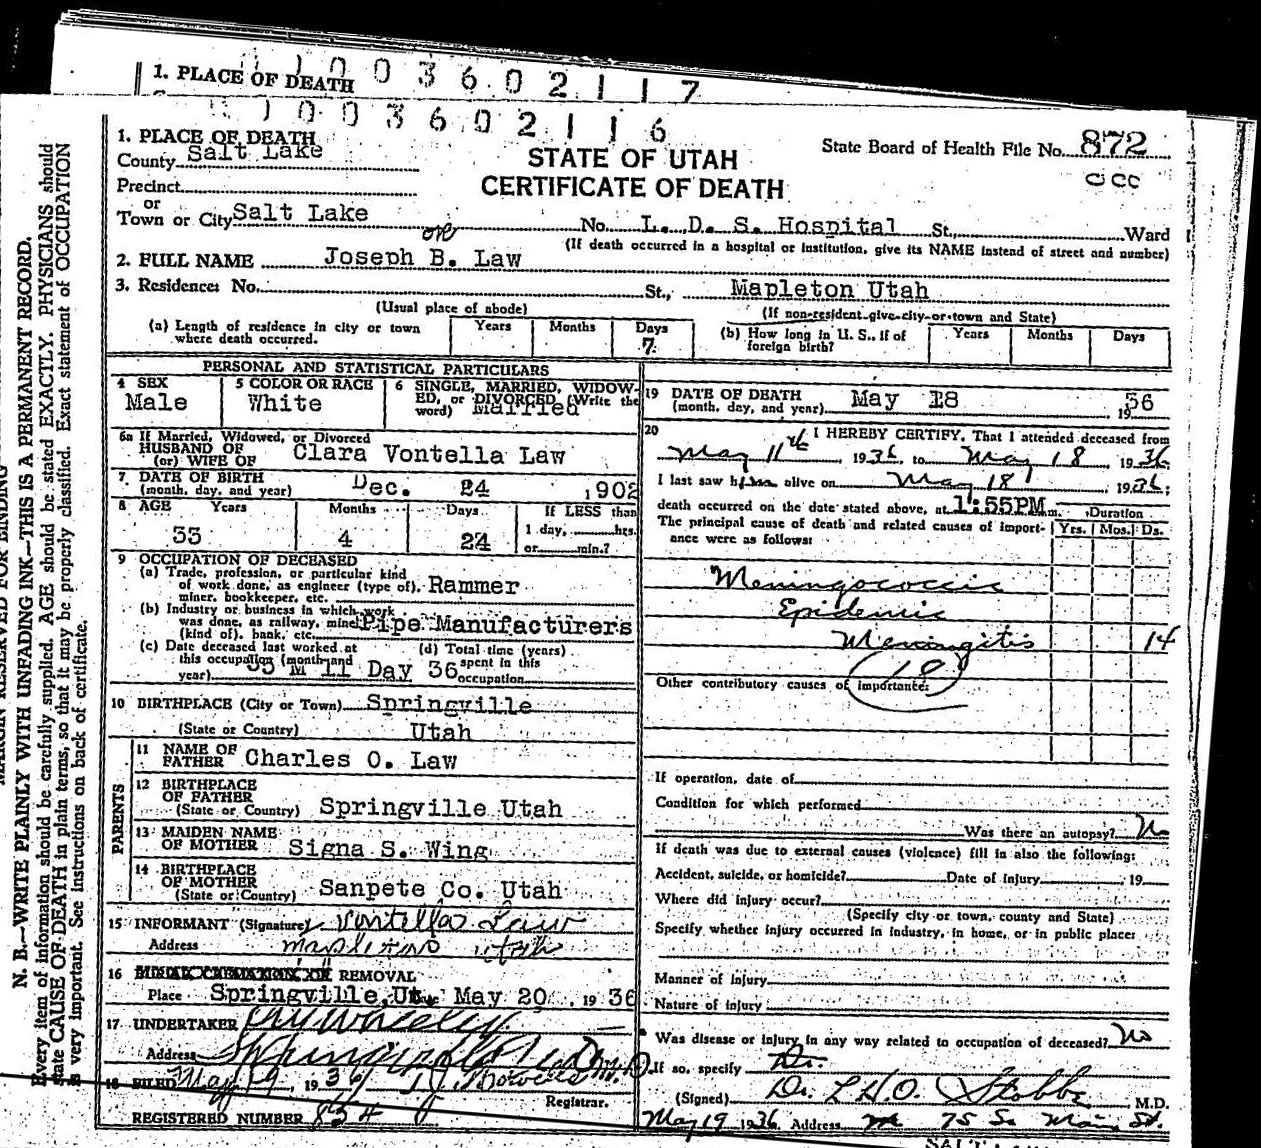 1. PLACE OF DEATH
1003602117
1003602116
1. PLACE OF DEATH
County Salt Lake
State Board of Health File No. 872
STATE OF UTAH
CERTIFICATE OF DEATH
Precinct
or
Town or City Salt Lake No. L. D. S. Hospital St., Ward
(If death occurred in a hospital or institution, give its NAME instead of street and number)
2. FULL NAME Joseph B. Law
3. Residence: No. St., Mapleton Utah
(Usual place of abode) (If non-resident give city or town and State)
(a) Length of residence in city or town where death occurred. Years Months Days 7
(b) How long in U. S., if of foreign birth? Years Months Days
PERSONAL AND STATISTICAL PARTICULARS
4 SEX Male
5 COLOR OR RACE White
6 SINGLE, MARRIED, WIDOWED, or DIVORCED (Write the word) Married
6a If Married, Widowed, or Divorced
HUSBAND OF
(or) WIFE OF Clara Vontella Law
7 DATE OF BIRTH
(month, day, and year) Dec. 24 1902
8 AGE Years Months Days If LESS than
33 4 24 1 day, hrs.
or min.?
9 OCCUPATION OF DECEASED
(a) Trade, profession, or particular kind
of work done, as engineer (type of), Rammer
miner, bookkeeper, etc.
(b) Industry or business in which work
was done, as railway, mine Pipe Manufacturers
(kind of), bank, etc.
(c) Date deceased last worked at
this occupation (month and
year) M 11 Day 36
(d) Total time (years)
spent in this
occupation
10 BIRTHPLACE (City or Town) Springville
(State or Country) Utah
PARENTS
11 NAME OF
FATHER Charles O. Law
12 BIRTHPLACE
OF FATHER
(State or Country) Springville Utah
13 MAIDEN NAME
OF MOTHER Signa S. Wing
14 BIRTHPLACE
OF MOTHER
(State or Country) Sanpete Co. Utah
15 INFORMANT (Signature) Vontella Law
Address Mapleton Utah
16 REMOVAL
Place Springville, Ut. May 20 1936
17 UNDERTAKER
Address Springville
18 FILED May 19, 1936
Registrar.
REGISTERED NUMBER 834
19 DATE OF DEATH
(month, day, and year) May 18 1936
20 I HEREBY CERTIFY, That I attended deceased from
May 11th 1936, to May 18, 1936
I last saw him alive on May 18 1936;
death occurred on the date stated above, at 1:55PM m. Duration
The principal cause of death and related causes of importance were as follows: Yrs. Mos. Ds.
Meningococcic
Epidemic
Meningitis 14
18
Other contributory causes of importance:
If operation, date of
Condition for which performed
Was there an autopsy? No
If death was due to external causes (violence) fill in also the following:
Accident, suicide, or homicide? Date of Injury 19
Where did injury occur?
(Specify city or town, county and State)
Specify whether injury occurred in industry, in home, or in public place:
Manner of injury
Nature of injury
Was disease or injury in any way related to occupation of deceased? No
If so, specify Dr.
(Signed) Dr. L H O. Stobbe M.D.
May 19 1936 Address 75 So. Main St.
N. B.—WRITE PLAINLY WITH UNFADING INK—THIS IS A PERMANENT RECORD.
Every item of information should be carefully supplied. AGE should be stated EXACTLY. PHYSICIANS should
state CAUSE OF DEATH in plain terms, so that it may be properly classified. Exact statement of OCCUPATION
is very important. See instructions on back of certificate.